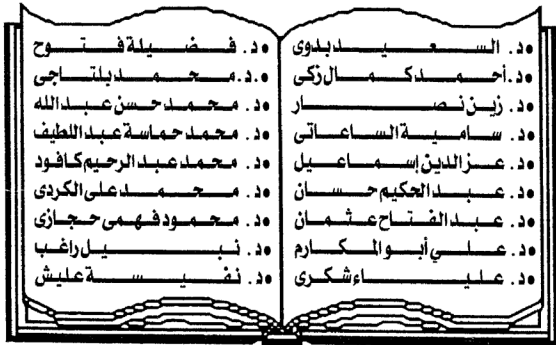 •د. السعيد بدوى
•د. أحمد كمال زكى
•د. زين نصار
•د. سامية الساعاتى
•د. عز الدين إسماعيل
•د. عبد الحكيم حسان
•د. عبد الفتاح عثمان
•د. على أبو المكارم
•د. علياء شكرى
•د. فضيلة فتوح
•د. محمد بلتاجى
•د. محمد حسن عبد الله
•د. محمد حماسة عبد اللطيف
•د. محمد عبد الرحيم كافود
•د. محمد على الكردى
•د. محمود فهمى حجازى
•د. نبيل راغب
•د. نفيسة عليش